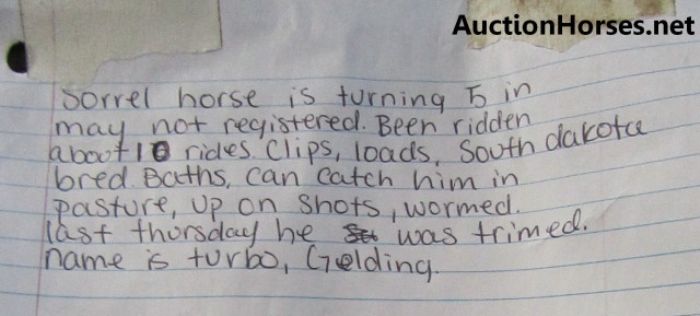 AuctionHorses.net
Sorrel horse is turning 5 in
may not registered. Been ridden
about 10 rides. Clips, loads, South dakota
bred. Baths, can catch him in
pasture, up on shots, wormed.
last thursday he was trimed.
name is turbo, Gelding.